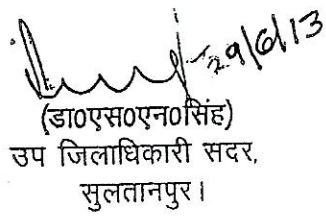 29/6/13
(डा०एस०एन०सिंह)
उप जिलाधिकारी सदर,
सुलतानपुर।